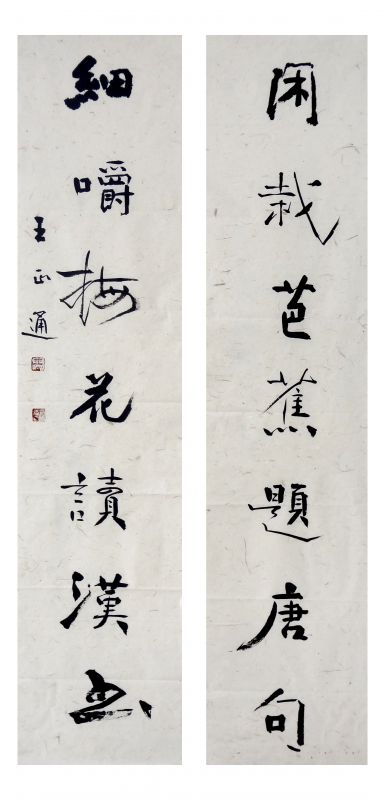 闲栽芭蕉題唐句
細嚼梅花讀漢书
王正通